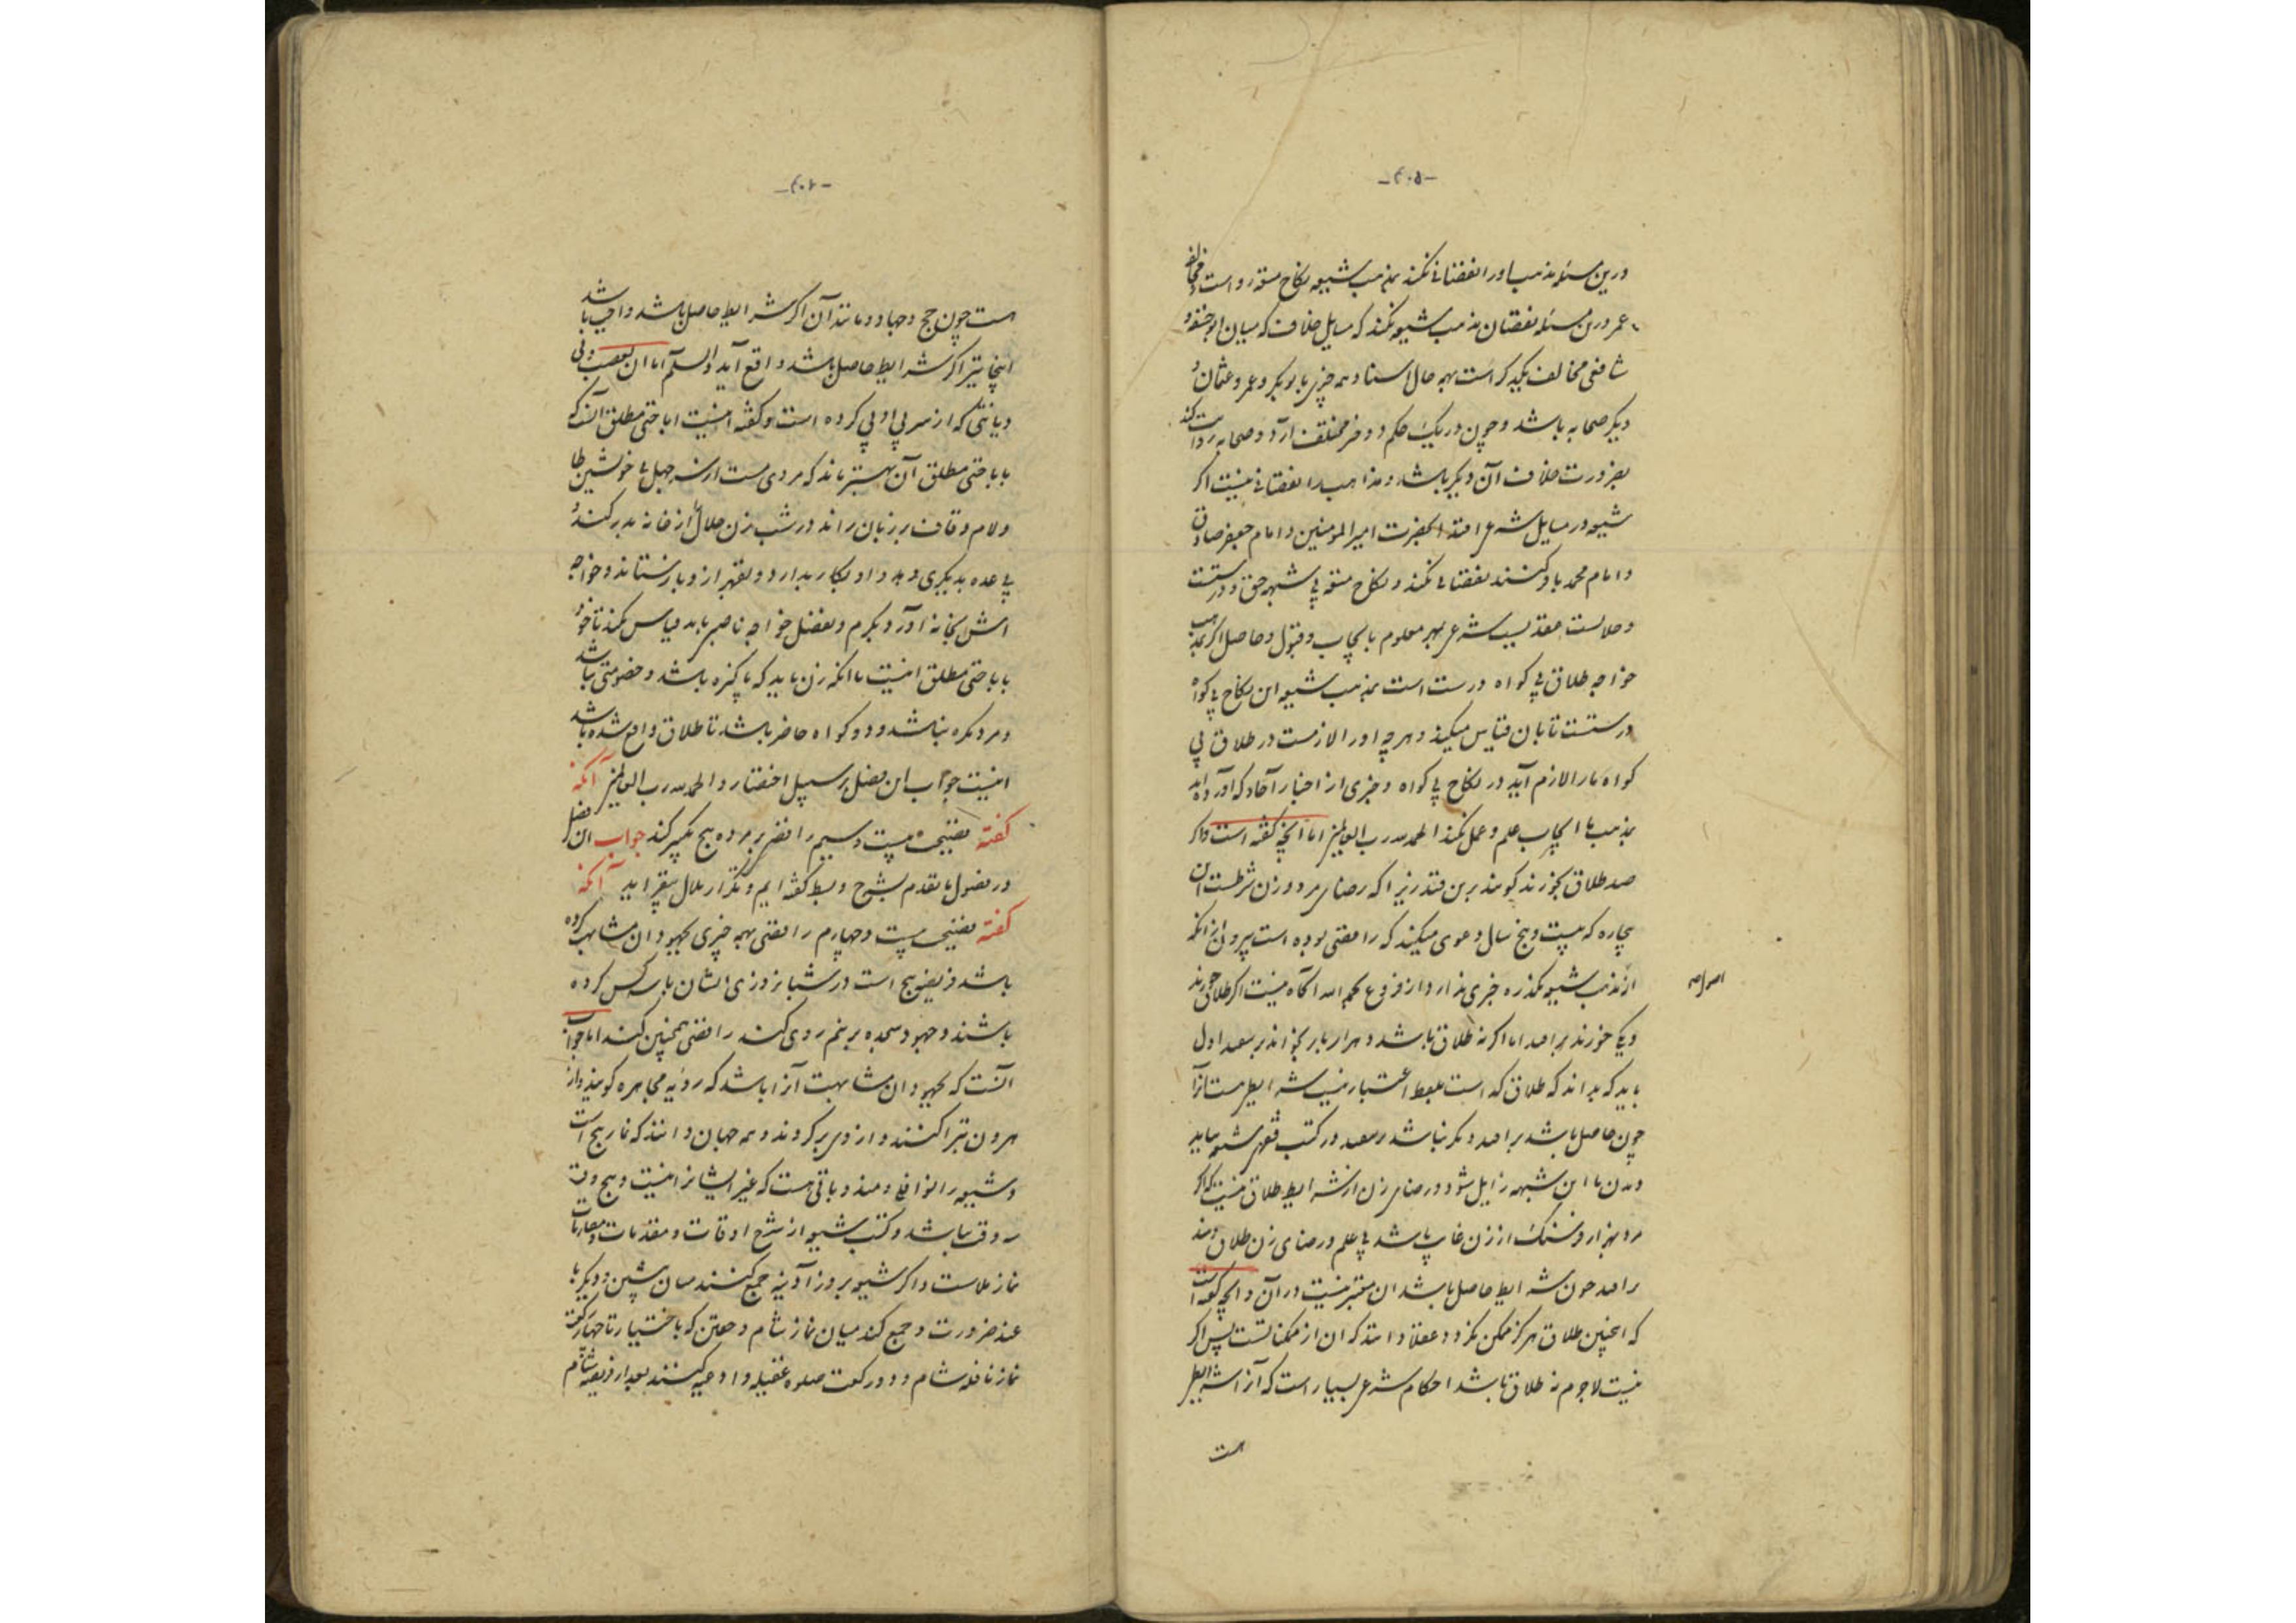 -۴۰۵-
درین مسئله مذهب او را نقصانی نکند بمذهب شیعه نکاح متعه رواست و مخالفت
عمر درین مسئله نقصان مذهب شیعه نکند که مسایل خلاف که میان ابوحنیفه و
شافعی مخالف یکدیگر است بهمه حال اسناد همه چیزی با بوبکر و عمر و عثمان و
دیگر صحابه باشد و چون در یک حکم دو خبر مختلف آرد دو صحابه روایت کند
بضرورت خلاف آن دیگر باشد و مذاهب را نقصانی نیست اگر
شیعه در مسایل شرع اقتدا بحضرت امیر المومنین و امام جعفر صادق
و امام محمد باقر کنند نقصانی نکند و نکاح متعه بی شبهه حق و درستست
و حلالست بعقدیست شرعی بمهر معلوم بایجاب و قبول و حاصل اگر بمذهب
خواجه طلاق بی گواه درست است بمذهب شیعه این نکاح بی گواه
درستست تا بان قیاس میکند و هرچه او را لازمست در طلاق بی
گواه ما را لازم آید در نکاح بی گواه و خبری از اخبار آحاد که آورده اند
بمذهب ما ایجاب علم و عمل نکند الحمد لله رب العالمین اما آنچه گفته است و اگر
صد طلاق بخورند گویند برین قدر زیرا که رضای مرد و زن شرطست این
بیچاره که بیست و پنج سال دعوی میکند که رافضی بوده است بیرون از آنکه
از مذهب شیعه یکذره خبری ندارد از فروع بحمد الله آگاه نیست اگر طلاقی خورند
اصولی
و یکی خورند برافتد اما اگر نه طلاق باشد و هزار بار بخوانند بر نیفتد اول
باید که بداند که طلاق کدامست بلفظ اعتبار نیست شرایطی هست آنرا
چون حاصل باشد برافتد و گر نباشد نیفتد در کتب فقهی شیعه بباید
دیدن تا این شبهه زایل شود و رضای زن از شرایط طلاق نیست که اگر
مرد بهزار فرسنگ از زن غایب باشد بی علم و رضای زن طلاق دهند
برافتد چون شرایط حاصل باشد این معتبر نیست در آن و آنچه گفته است
که اینچنین طلاق هرگز ممکن نگردد عقلا دانند که این از ممکناتست پس اگر
نیست لاجرم نه طلاق باشد احکام شرعی بسیار است که آنرا شرایط
است
-۴۰۶-
است چون حج و جهاد و مانند آن اگر شرایط حاصل باشد واجب باشد
اینجا نیز اگر شرایط حاصل باشد واقع آید والسلم اما آن تعصب و بی
دیانتی که از سر بی ادبی کرده است و گفته اینست اباحتی مطلق آنست که
باباحتی مطلق آن بهتر ماند که مردی مست از سر جهل با خویشتن طا
و لام و قاف بر زبان راند در شب زن حلال را از خانه بدر کند و
بی عده بدیگری دهد و او بکار بدارد و بقهر ازو باز ستاند و خواجه
اش بخانه آورد دیگرم و بفضل خواجه ناصبی باید قیاس کند تا خود
باباحتی مطلق اینست یا آنکه زن باید که پاکیزه باشد و خصومتی نباشد
و مرد مکره نباشد و دو گواه حاضر باشد تا طلاق واقع شده باشد
اینست جواب این فصل بر سبیل اختصار و الحمد لله رب العالمین آنکه
گفته فضیحت بیست و سیم رافضی بر مرده پنج تکبیر کند جواب این فصل
در فصول ما تقدم بشرح و بسط گفته ایم و تکرار ملال بیفزاید آنکه
گفته فضیحت بیست و چهارم رافضی بهمه چیزی بجهودان مشابهت کرده
باشد فریضه پنج است در شبانروزی ایشان با سه کس کرده
باشند و جهود سجده بر نیم روی کند رافضی همچنین کند اما جواب
آنست که بجهودان مشابهت آنرا باشد که رؤیه مجاهره گویند و از
هرون تبرا کنند و از وی برگردند و همه جهان دانند که نماز پنج است
و شیعه را نوافل و مندوباتی هست که غیر ایشانرا نیست و پنج وقت
سه وقت نباشد و کتب شیعه از شرح اوقات و مقدمات و مقارنات
نماز ملاست و اگر شیعه بروز آدینه جمع کنند میان پیشین و دیگر یا
عند ضرورت و جمع کند میان نماز شام و خفتن که باختیار تا چهار رکعت
نماز نافله شام و دو رکعت صلوة غفیله و ادعیه کنند بعد از فریضه شام